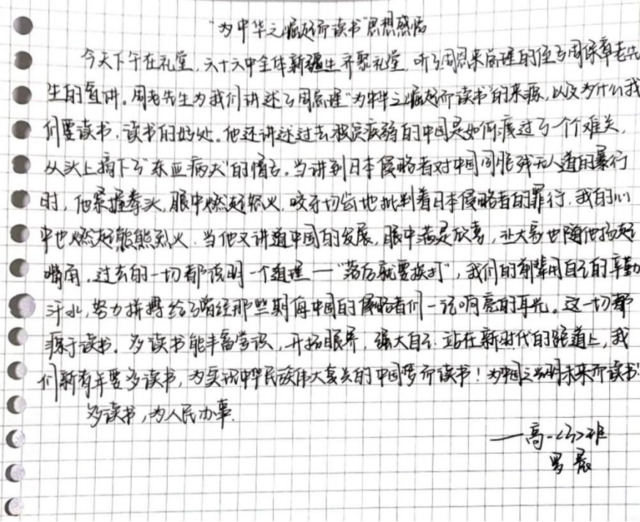 "为中华之崛起而读书"思想感悟
今天下午在礼堂,六十六中全体新疆生齐聚礼堂,听了周恩来总理的侄子周保章老先
生的宣讲。周老先生为我们讲述了周总理"为中华之崛起而读书"的来源,以及为什么我
们要读书,读书的好处。他还讲述过去被误疲弱的中国是如何度过了一个难关,
从头上摘下了"东亚病夫"的帽子。当讲到日本侵略者对中国同胞残无人道的暴行
时,他紧握拳头,眼中燃起怒火,咬牙切齿地批判着日本侵略者的罪行,我的心
中也燃起熊熊烈火。当他又讲道中国的发展,眼中满是欣喜,让大家也随他扬起
嘴角,过去的一切都说明一个道理——"落后就要挨打",我们的前辈用自己的辛勤
汗水,努力拼搏给了曾经那些欺侮中国的侵略者们一记响亮的耳光。这一切都
源于读书。多读书能丰富学识,开拓眼界,强大自己。站在新时代的跑道上,我
们新青年要多读书,为实现中华民族伟大复兴的中国梦而读书!为中国之光明未来而读书!
多读书,为人民办事。
——高一(3)班